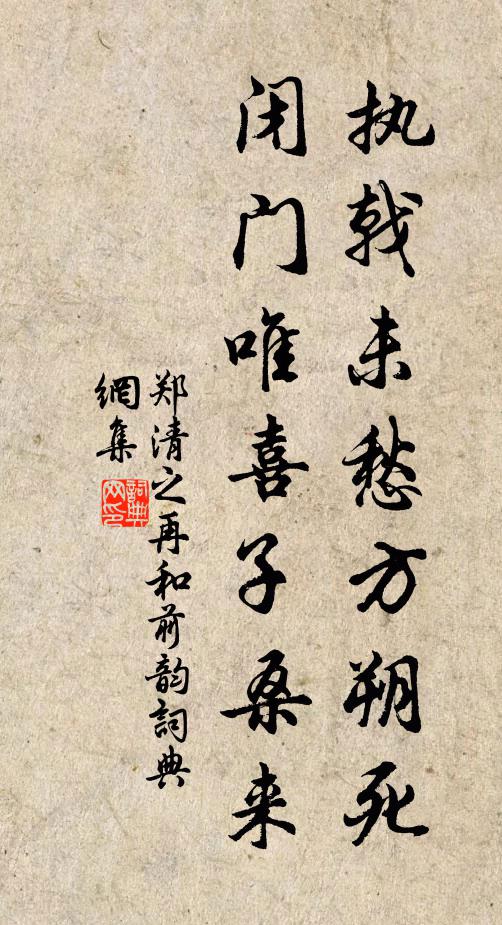 执戟未愁方朔死
闭门唯喜子桑来
郑清之再和前韵词典
網集
詞典网印